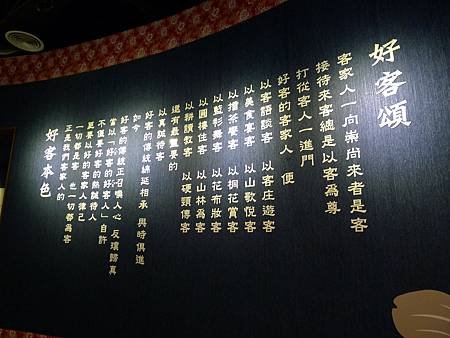 好客頌
客家人一向崇尚來者是客
接待來客總是以客為尊
打從客人一進門
好客的客家人 便
以客語談客 以客庄遊客
以美食宴客 以山歌悅客
以擂茶饗客 以桐花賞客
以藍彩舞客 以花布妝客
以圓樓住客 以山林為客
以耕讀教客 以硬頸傳客
還有最重要的
以真誠待客
好客的傳統綿延相承 與時俱進
如今
好客的傳統正召喚人心 反璞歸真
當以「好客的好客人」自許
不僅要好客的熱誠待人
更要以好的客家人律己
一切都是客 也一切都為客
正是我們客家人的
好客本色